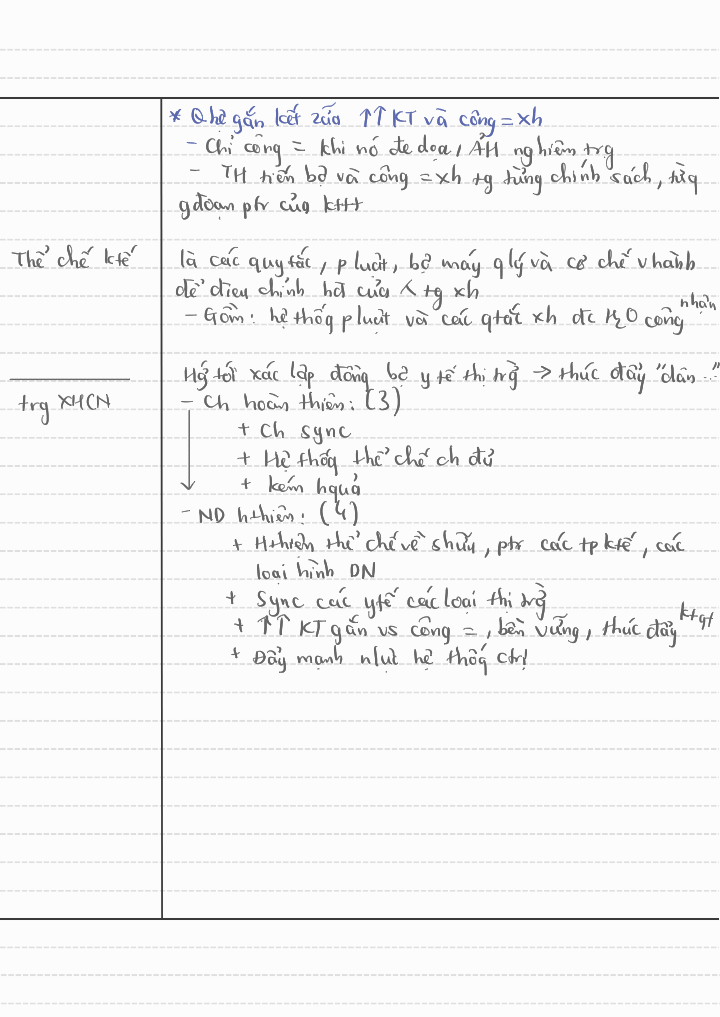 * Qhệ gắn kết zữa ↑↑ KT và công = xh
- Chỉ công = khi nó đe dọa, ẢH nghiêm trg
- TH tiến bộ và công = xh tg từng chính sách, từg
gđoạn ptr của kttt
Thể chế ktế
là các quy tắc, p luật, bộ máy q lý và cơ chế vhành
để điều chỉnh hđ của tg xh
nhận
- Gồm: hệ thốg p luật và các qtắc xh đc H2O công
Hg tới xác lập đồng bộ ytế thị trg → thúc đẩy "dân..."
trg XHCN
- Ch hoàn thiện: (3)
+ Ch sync
+ Hệ thốg thể chế ch đủ
+ kém hquả
- ND hthiện: (4)
+ Hthiện thể chế về shữu, ptr các tp ktế, các
loại hình DN
+ Sync các ytế các loại thị trg
ktqt
+ ↑↑ KT gắn vs công =, bền vững, thúc đẩy
+ Đẩy mạnh nlực hệ thốg ctrị